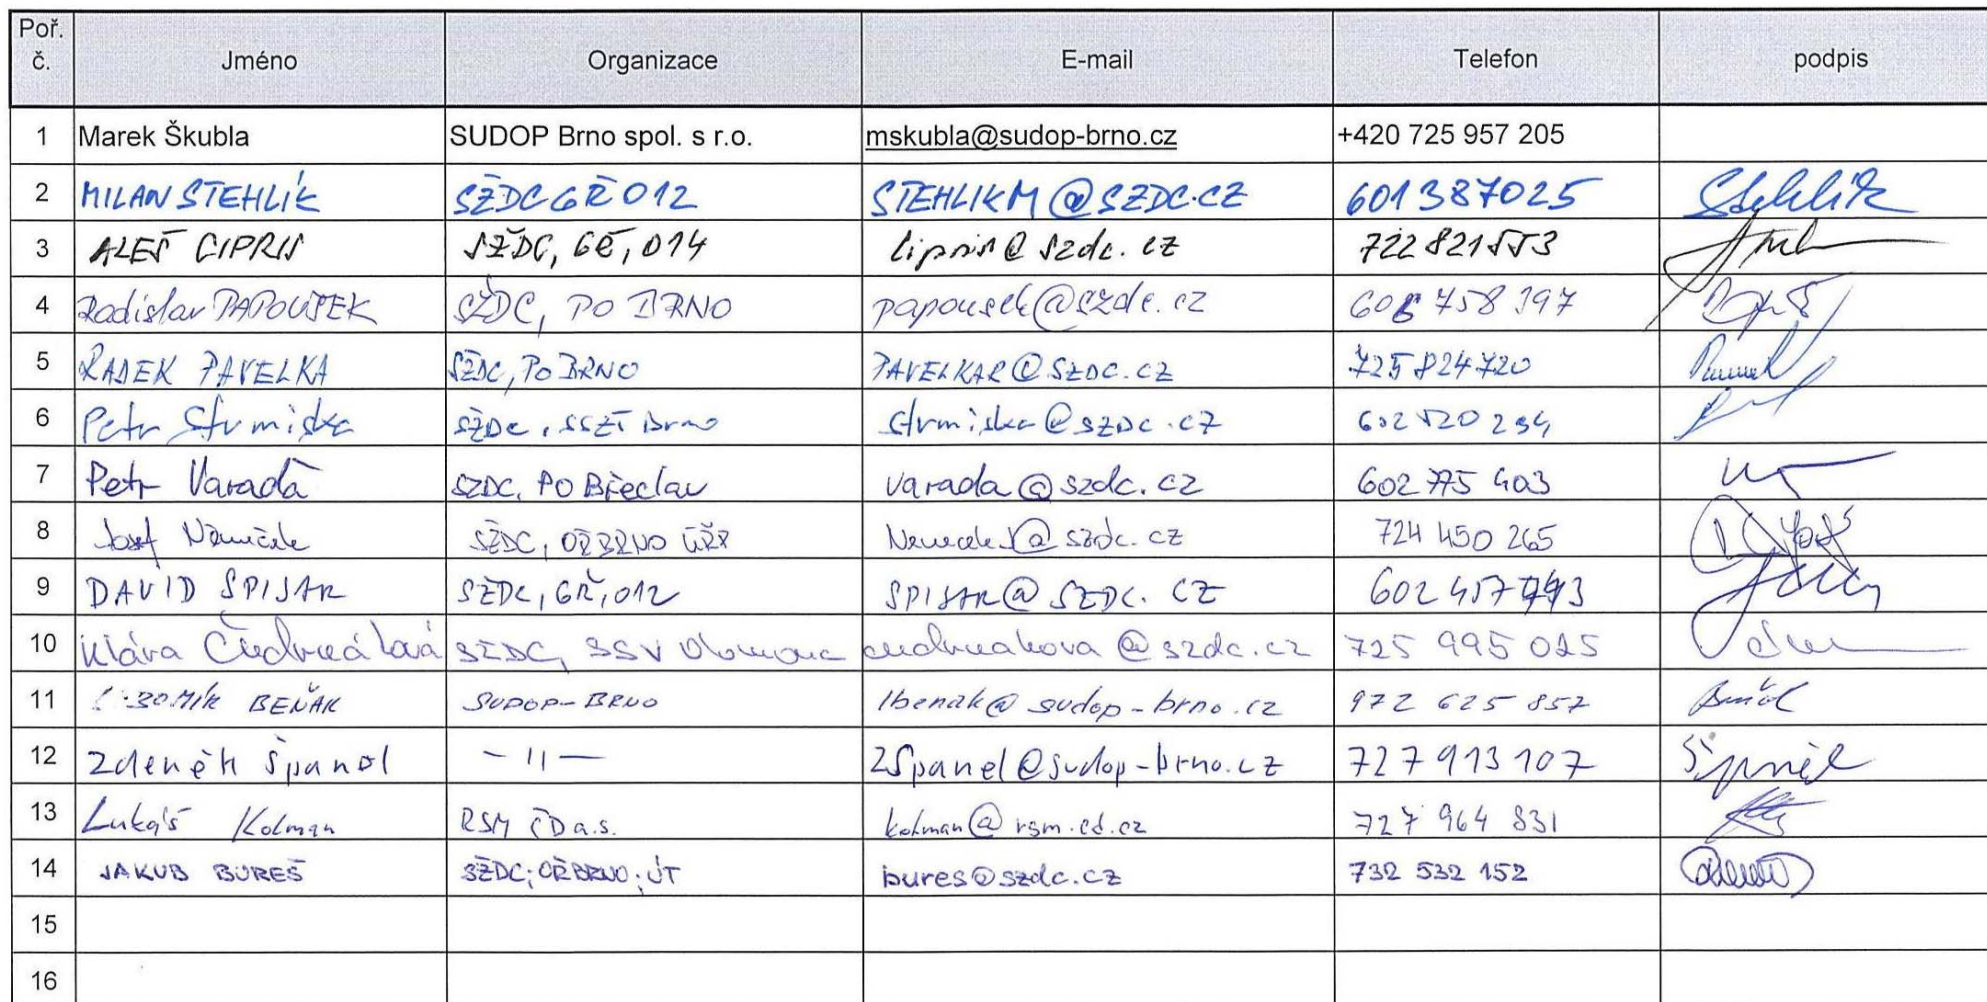 Poř. č. Jméno Organizace E-mail Telefon podpis
1 Marek Škubla SUDOP Brno spol. s r.o. mskubla@sudop-brno.cz +420 725 957 205
2 MILAN STEHLÍK SŽDC GŘ 012 STEHLIKM@SZDC.CZ 601387025 Stehlík
3 ALEŠ CIPRIS SŽDC, GŘ, 014 Cipris@szdc.cz 722821553
4 Radislav PAPOUŠEK SŽDC, PO BRNO papousek@szdc.cz 758 397
5 RADEK PAVELKA SŽDC, PO BRNO PAVELKAR@SZDC.CZ 725 824 720
6 Petr Strmiska SŽDC, SSZT Brno strmiska@szdc.cz 602 520
7 Petr Varada SŽDC, PO Břeclav varada@szdc.cz 602 775 403
8 Josef Němeček SŽDC, OŘ BRNO 724 450 265
9 DAVID SPISAR SŽDC, GŘ, 012 SPISAR@SZDC.CZ 602 457
10 Klára SŽDC, SSV Olomouc 725 995 015
11 BEŇAK SUDOP-BRNO lbenak@sudop-brno.cz 972 625 857
12 Zdeněk Španěl - 11 - ZSpanel@sudop-brno.cz 727 913 107 Španěl
13 Lukáš Kolman RSM ČD a.s. kolman@rsm.cd.cz 727 964 831
14 JAKUB BUREŠ SŽDC; OŘ BRNO; ÚT bures@szdc.cz 732 532 152
15
16